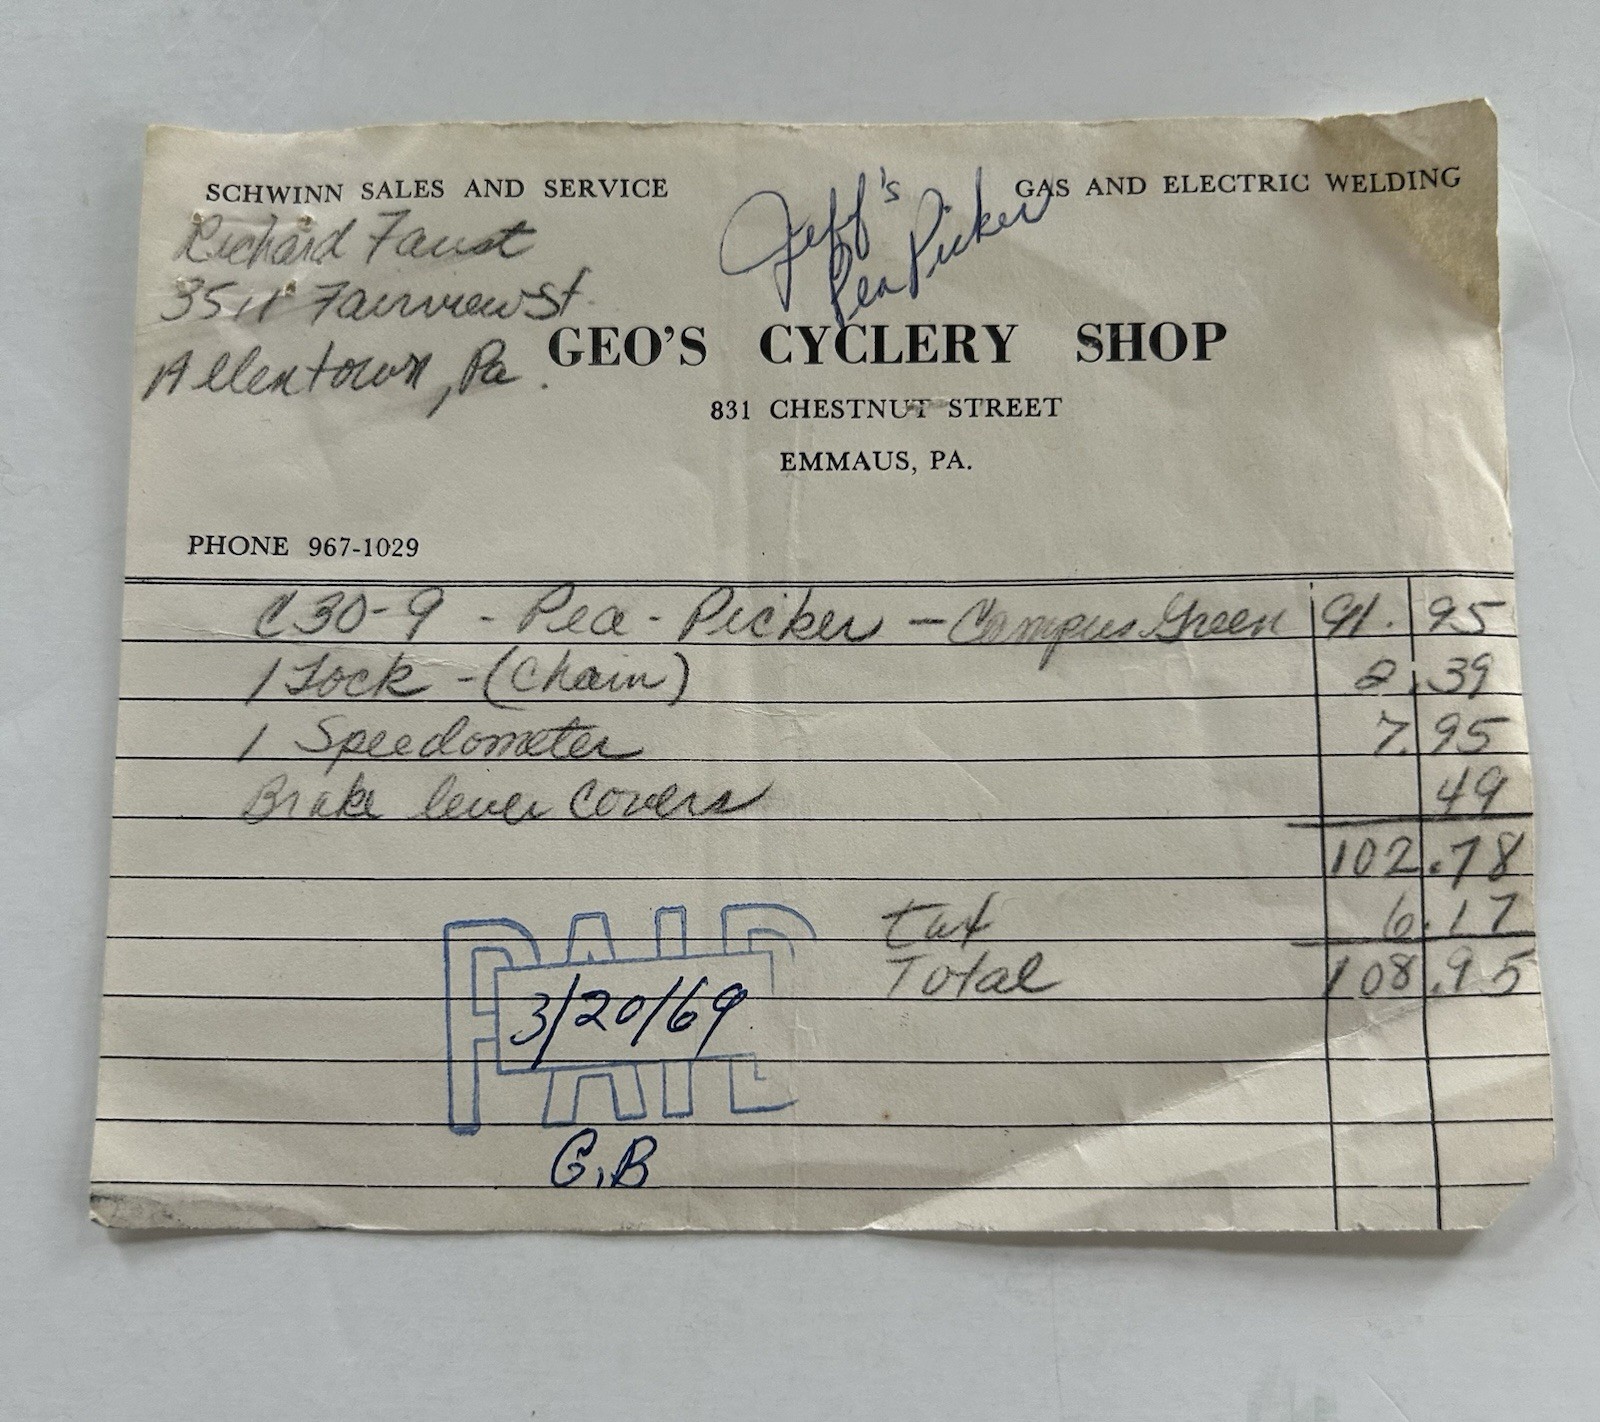 SCHWINN SALES AND SERVICE
GAS AND ELECTRIC WELDING
Jeff's
Pea Picker
Richard Faust
3511 Fairview St.
Allentown, Pa.
GEO'S CYCLERY SHOP
831 CHESTNUT STREET
EMMAUS, PA.
PHONE 967-1029
C30-9 - Pea-Picker - Campus Green 91.95
1 Lock - (Chain) 2.39
1 Speedometer 7.95
Brake lever covers 49
102.78
tax 6.17
Total 108.95
PAID
3/20/69
G.B